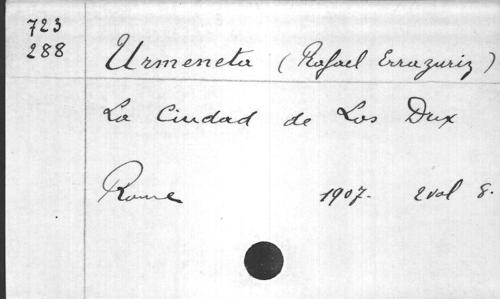 723
288
Urmeneta (Rafael Errazuriz)
La Ciudad de Los Dux
Rome 1907. 2 vol 8.